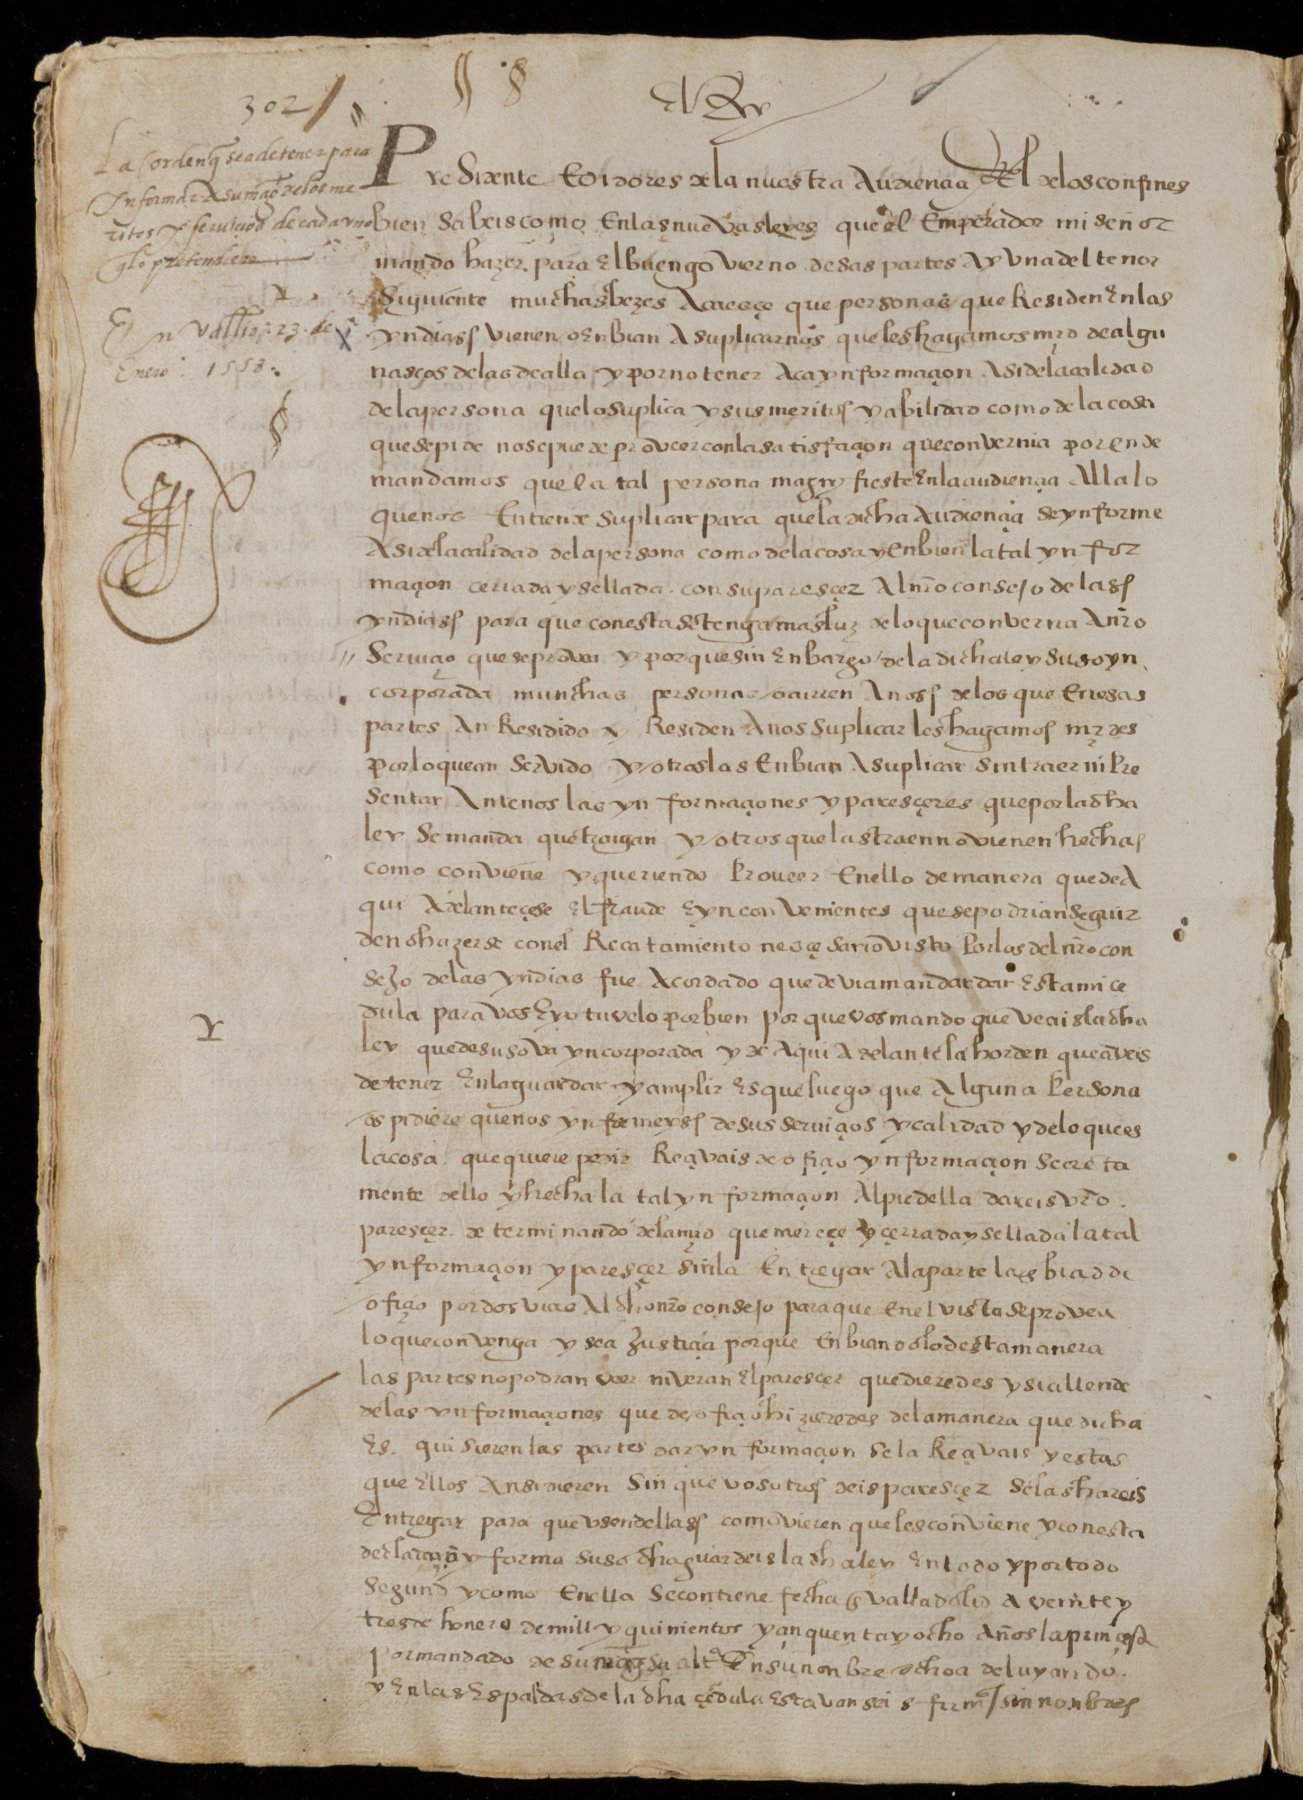 302
El Rey
La orden q se a de tener para
Informar a su mag de los me
ritos y servicios de cada uno
q lo pretendiere
En Vallid. 23. de
Enero. 1558.
Presidente E oidores de la nuestra Audiencia Real de los confines
bien sabeis como En las nuevas leyes que el Emperador mi señor
mando hazer para El buen govierno desas partes Ay una del tenor
siguiente muchas bezes Acaesçe que personas que Residen En las
yndias vienen o Enbian A suplicarnos que les hagamos mrd de algu
nas cosas de las de alla y por no tener Aca ynformaçion Asi de la calidad
de la persona que lo suplica y sus meritos y abilidad como de la cosa
que se pide no se puede proveer con la satisfaçion que convernia por ende
mandamos que la tal persona magnifieste En la audiençia Alla lo
que nos Entiende suplicar para que la dicha Audiençia se ynforme
Asi de la calidad de la persona como de la cosa y Enbien la tal ynfor
maçion cerrada y sellada con su paresçer Al nro consejo de las
yndias para que con esto se tenga mas luz de lo que converna A nro
Serviçio que se provea y porque sin Enbargo de la dicha ley suso yn
corporada munchas personas ocurren A nos de los que En esas
partes An Residido y Residen A nos suplicar les hagamos mrdes
por lo que an servido y otros las Enbian A suplicar sin traer ni Pre
sentar Ante nos las ynformaçiones y paresçeres que por la dha
ley se manda que traigan y otros que las traen no vienen hechas
como conviene y queriendo Proveer En ello de manera que de A
qui Adelante çese El fraude E ynconvenientes que se podrian seguir
de no hazerse con el Recatamiento nesçesario visto Por los del nro con
sejo de las yndias fue Acordado que devia mandar dar Esta mi çe
dula para vos E yo tuvelo por bien por que vos mando que veais la dha
ley que de suso va yncorporada y de Aqui Adelante la horden que aveis
de tener En la guardar y cumplir Es que luego que Alguna Persona
os pidiere que nos ynformeys de sus serviçios y calidad y de lo que es
la cosa que quiere pedir Reçivais de ofiçio ynformaçion secreta
mente dello y hecha la tal ynformaçion Al pie della dareis vro
paresçer determinando de la mrd que mereçe y çerrada y sellada la tal
ynformaçion y paresçer sin la Entregar A la parte la enbiad de
ofiçio por dos vias Al dho nro consejo para que En el visto se provea
lo que convenga y sea Justiçia porque Enbiandolo desta manera
las partes no podran veer ni veran El paresçer que dieredes y si allende
de las ynformaçiones que de ofiçio hizieredes de la manera que dicha
Es quisieren las partes dar ynformaçion se la Reçivais y estas
que Ellos Ansi dieren sin que vosotros deis paresçer se las hareis
Entregar para que usen dellas como vieren que les conviene y con esta
declaraçion y forma suso dha guardeis la dha ley En todo y por todo
segund y como En ella se contiene fecha En Valladolid A veinte y
tres de henero de mill y quinientos y çinquenta y ocho Años la prinçesa
Por mandado de su mag su alteza En su nonbre ochoa de luyando
y En las Espaldas de la dha çedula Estavan seis firmas sin nonbres